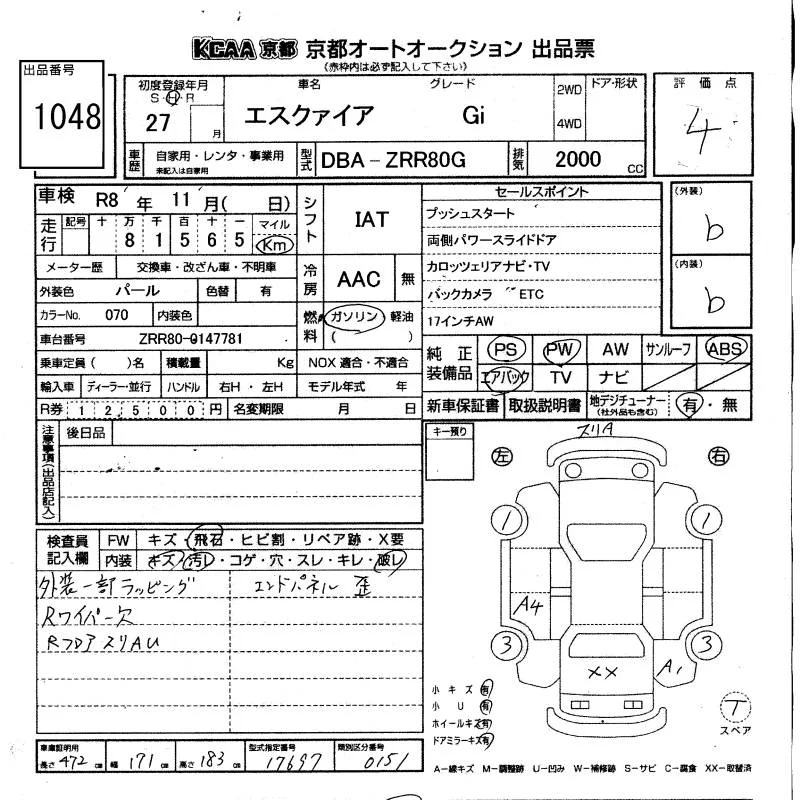 KCAA 京都 京都オートオークション 出品票
(赤枠内は必ず記入して下さい)
出品番号
1048
初度登録年月
S・H・R
27 月
車名
エスクァイア
グレード
Gi
2WD
4WD
ドア・形状
評価点
4
車歴
自家用・レンタ・事業用
未記入は自家用
型式
DBA-ZRR80G
排気
2000
CC
車検 R8 年 11 月( 日)
走行
記号 十 万 千 百 十 一 マイル
8 1 5 6 5 Km
メーター歴 交換車・改ざん車・不明車
外装色 パール 色替 有
カラーNo. 070 内装色
車台番号 ZRR80-0147781
乗車定員( )名 積載量 Kg
輸入車 ディーラー・並行 ハンドル 右H・左H
R券 12,500円 名変期限 月 日
シフト IAT
冷房 AAC 無
燃料 ガソリン 軽油
( )
NOX 適合・不適合
モデル年式 年
セールスポイント
プッシュスタート
両側パワースライドドア
カロッツェリアナビ・TV
バックカメラ ETC
17インチAW
(外装)
b
(内装)
b
純正装備品
PS PW AW サンルーフ ABS
エアバック TV ナビ
新車保証書 取扱説明書 地デジチューナー
(社外品も含む)
有・無
注意事項(出品店記入)
後日品
キー預り
検査員記入欄
FW キズ・飛石・ヒビ割・リペア跡・X要
内装 キズ・汚レ・コゲ・穴・スレ・キレ・破レ
外装一部ラッピング
Rワイパー欠
Rフロア スリAU
エンドパネル 歪
左 右
スリA
1 1
A4
3 3
XX
A1
小キズ 有
小U 有
ホイールキズ 有
ドアミラーキズ 有
T
スペア
車庫証明用
長さ 472 cm 幅 171 cm 高さ 183 cm
型式指定番号
17697
類別区分番号
0151
A-線キズ M-調整跡 U-凹み W-補修跡 S-サビ C-腐食 XX-取替済